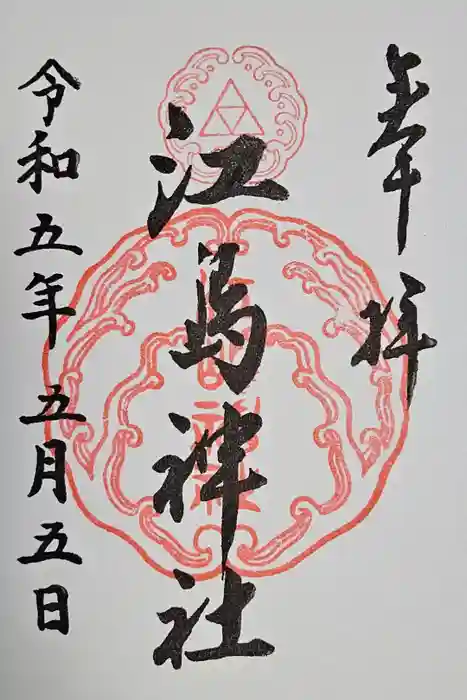 奉拝
江島神社
令和五年五月五日